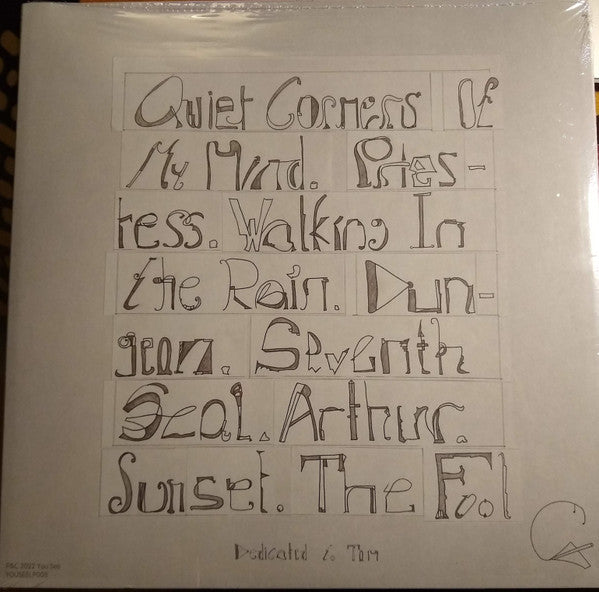 Quiet Corners Of
My Mind. Pries-
tess. Walking In
the Rain. Dun-
geon. Seventh
Seal. Arthur.
Sunset. The Fool
Dedicated to Tom
P&C 2022 You See
YOUSEELP005